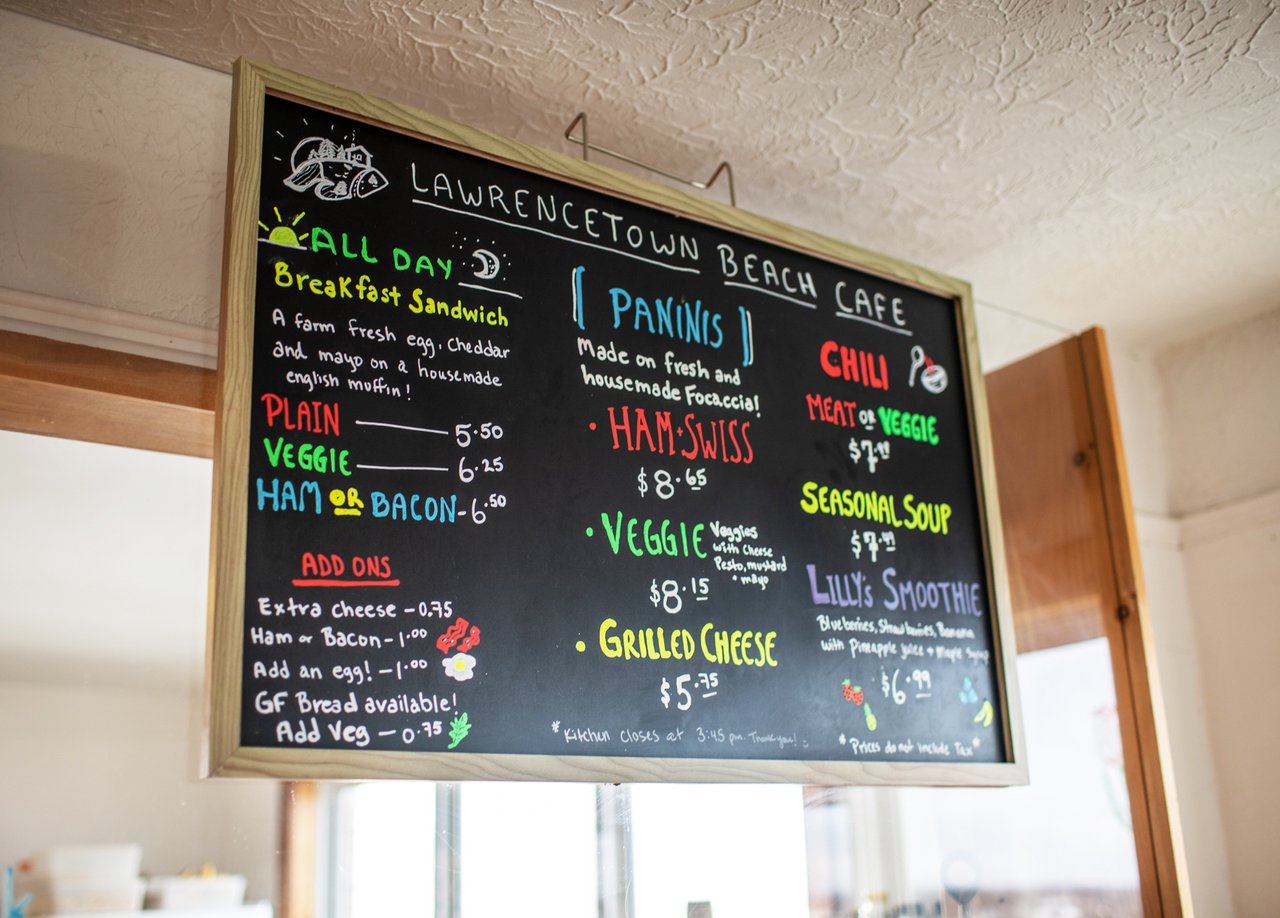 LAWRENCETOWN BEACH CAFE
ALL DAY
Breakfast Sandwich
A farm fresh egg, cheddar
and mayo on a housemade
english muffin!
PLAIN 5.50
VEGGIE 6.25
HAM OR BACON - 6.50
ADD ONS
Extra cheese - 0.75
Ham or Bacon - 1.00
Add an egg! - 1.00
GF Bread available!
Add Veg - 0.75
[PANINIS]
Made on fresh and
housemade Focaccia!
• HAM + SWISS
$8.65
• VEGGIE
Veggies
with cheese
Pesto, mustard
+ mayo
$8.15
• GRILLED CHEESE
$5.75
*Kitchen closes at 3:45 pm. Thank you!
CHILI
MEAT OR VEGGIE
$7.99
SEASONAL SOUP
$7.49
LILLY's SMOOTHIE
Blueberries, Strawberries, Banana
with Pineapple juice + Maple Syrup
$6.99
*Prices do not include Tax*